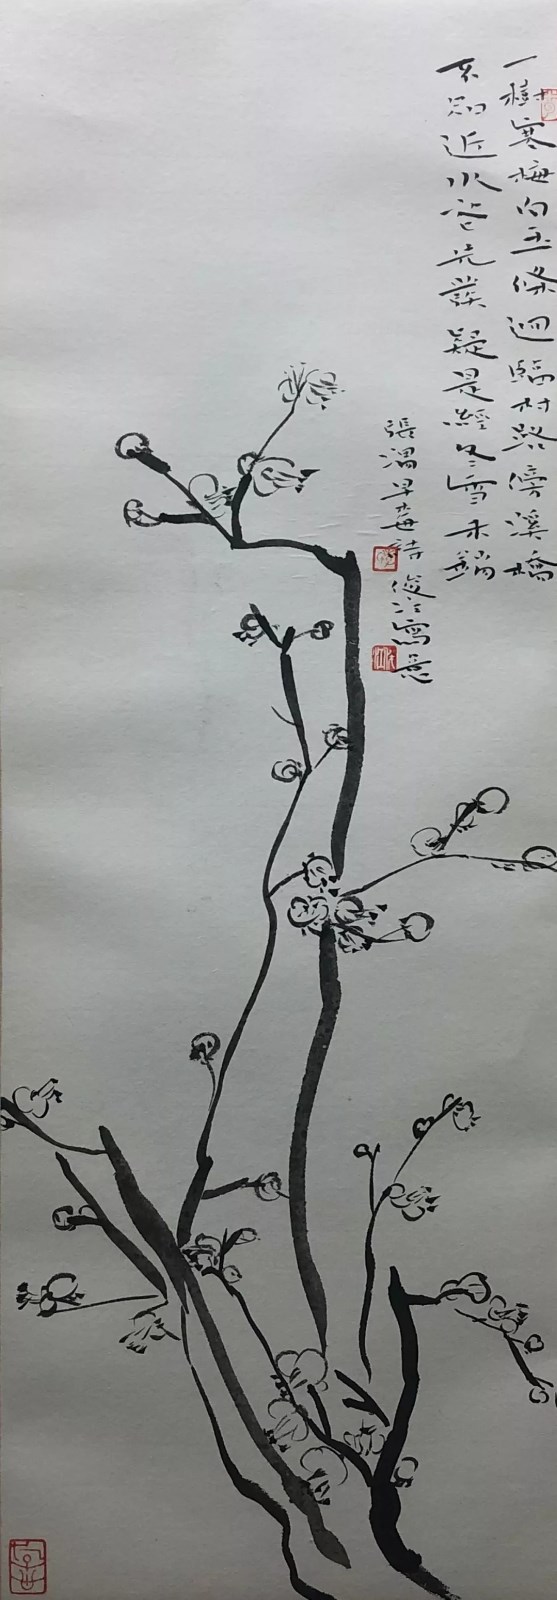 一樹寒梅白玉條迴臨村路傍溪橋
不知近水花先發疑是經冬雪未銷
張渭早梅詩
俊寫意